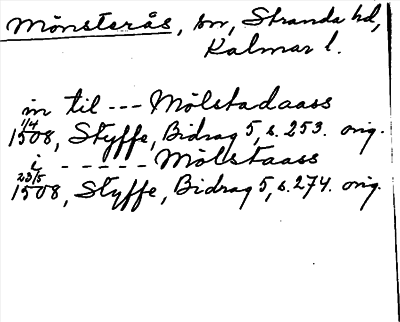 Mönsterås, sn, Stranda hd,
Kalmar l.
in til --- Mölstadaass
1/4
1508, Styffe, Bidrag 5, s. 253. orig.
i - - - - - Mölstaass
23/5
1508, Styffe, Bidrag 5, s. 274. orig.